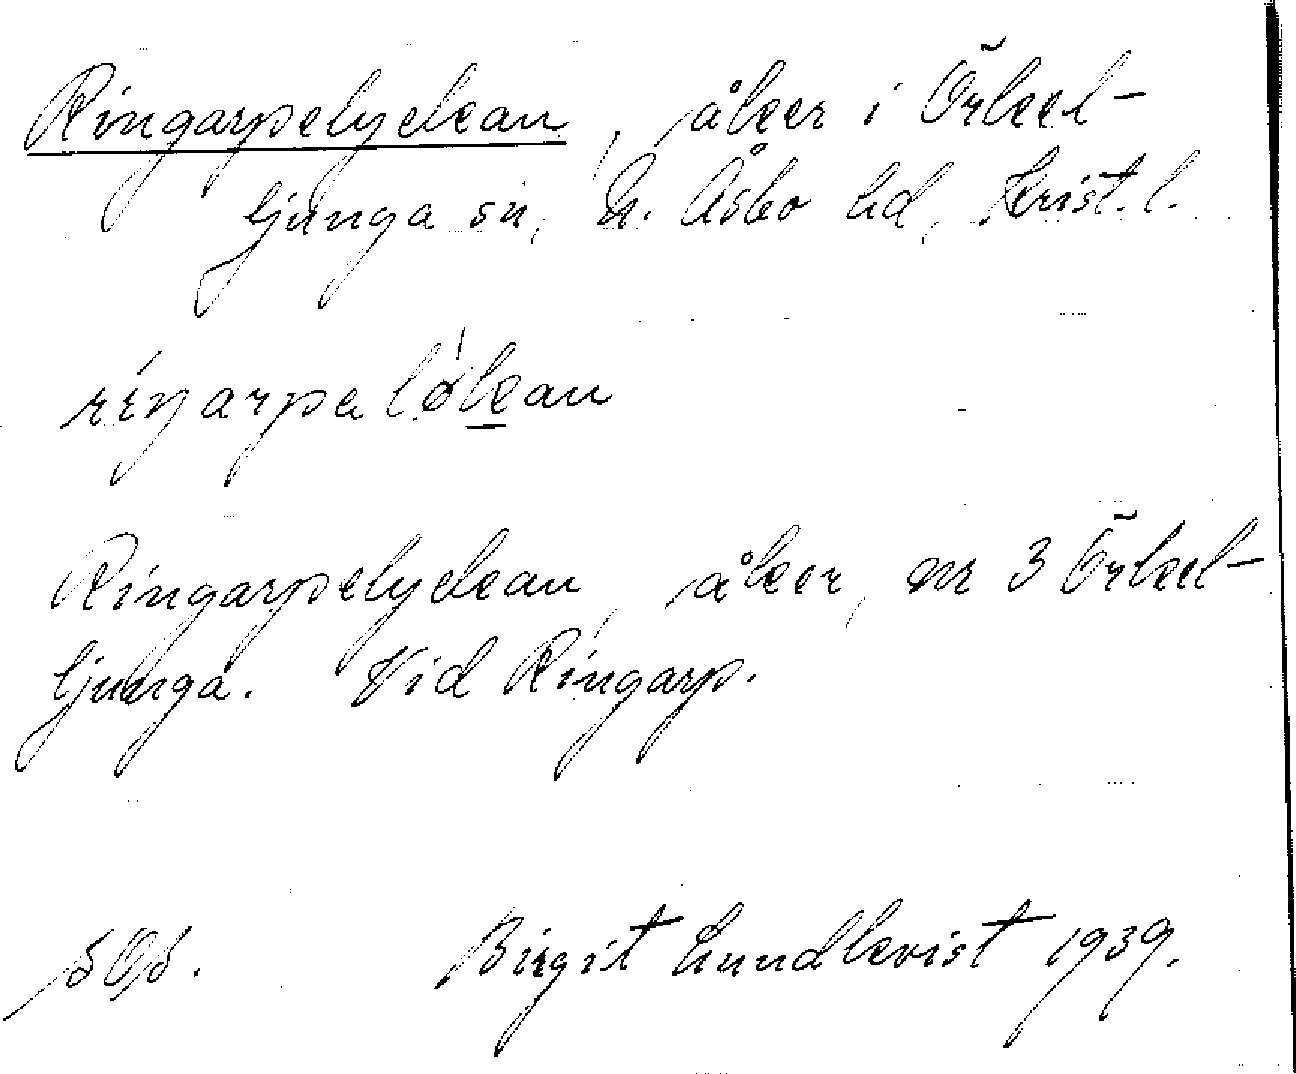 Ringarpelyckan, åker i Örkel-
ljunga sn, N. Åsbo hd, Krist. l.
ríŋarpa lø̀kan
Ringarpelyckan, åker, nr 3 Örkel-
ljunga. Vid Ringarp.
SOS. Birgit Lundkvist 1939.